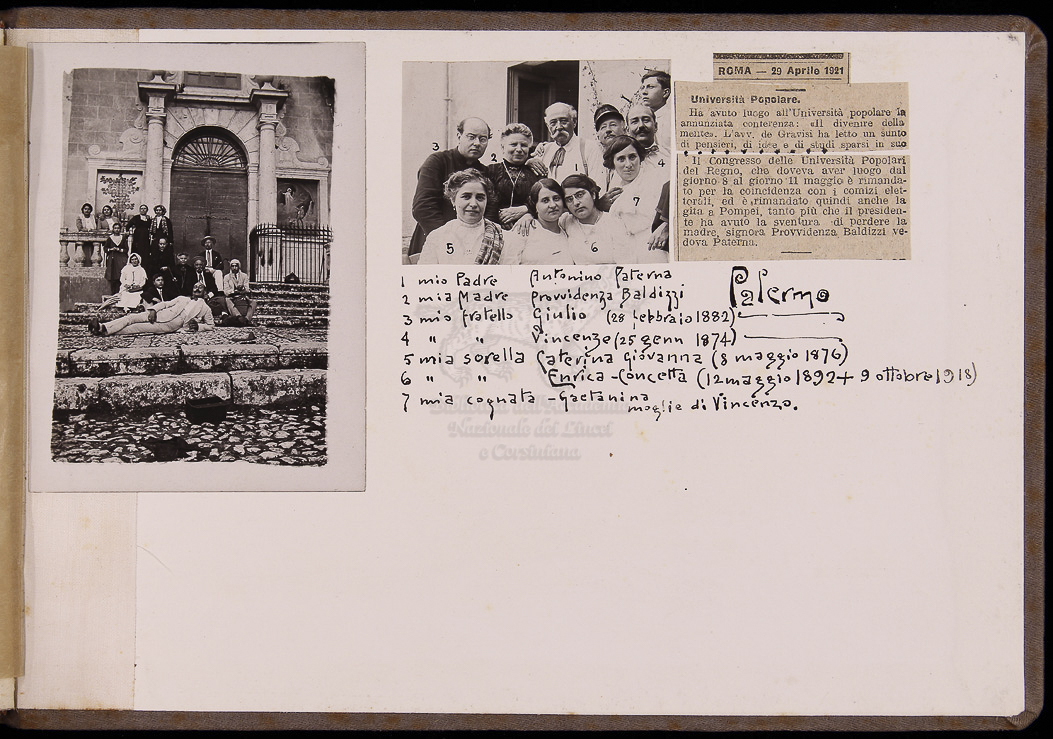 ROMA — 29 Aprile 1921
Università Popolare.
Ha avuto luogo all'Università popolare la
annunziata conferenza: «Il divenire della
mente». L'avv. de Gravisi ha letto un sunto
di pensieri, di idee e di studi sparsi in suo
Il Congresso delle Università Popolari
del Regno, che doveva aver luogo dal
giorno 8 al giorno 11 maggio è rimanda-
to per la coincidenza con i comizi elet-
torali, ed è rimandato quindi anche la
gita a Pompei, tanto più che il presiden-
te ha avuto la sventura di perdere la
madre, signora Provvidenza Baldizzi ve-
dova Paterna.
3
2
4
7
5
6
Palermo
1 mio Padre Antonino Paterna
2 mia Madre Provvidenza Baldizzi
3 mio fratello Giulio (28 febbraio 1882)
4 " " Vincenzo (25 genn 1874)
5 mia sorella Caterina Giovanna (8 maggio 1876)
6 " " Enrica-Concetta (12 maggio 1892 + 9 ottobre 1918)
7 mia cognata - Gaetanina
moglie di Vincenzo.
Biblioteca dell'Accademia
Nazionale dei Lincei
e Corsiniana